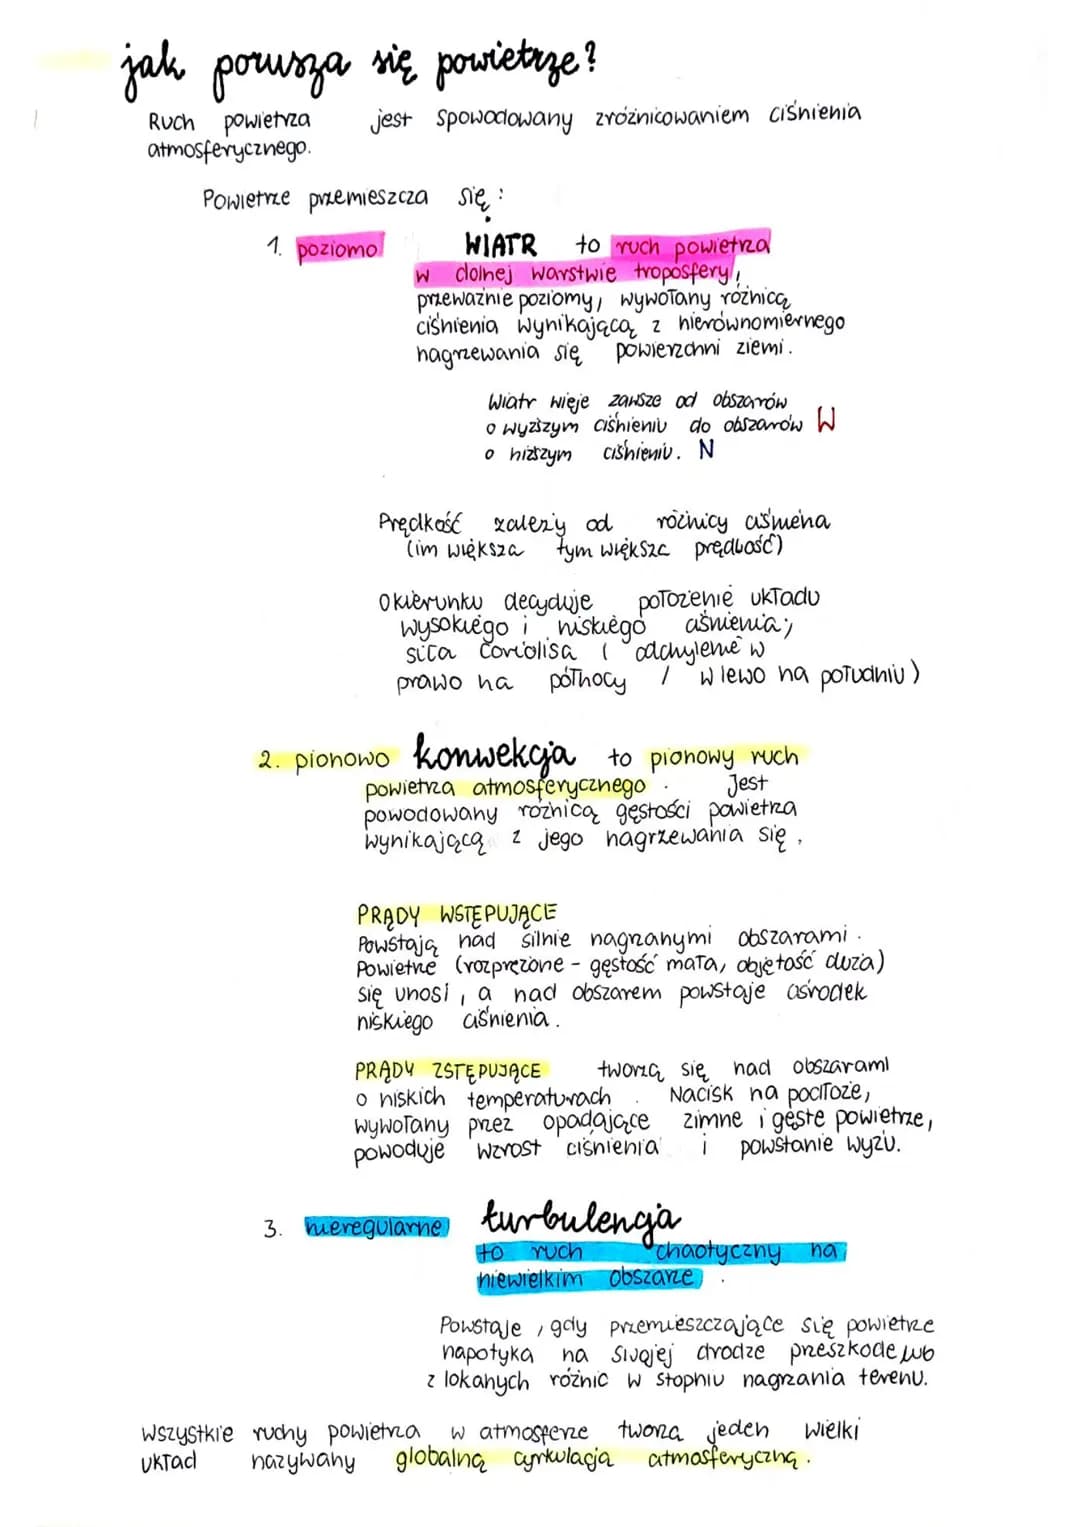 jak porusza się powietrze?
Ruch powietrza jest spowodowany zróżnicowaniem ciśnienia
atmosferycznego.
Powietrze przemieszcza się:
1. poziomo WIATR to ruch powietrza
w dolnej warstwie troposfery,
przeważnie poziomy, wywołany różnicą
ciśnienia wynikającą z nierównomiernego
nagrzewania się powierzchni ziemi.
Wiatr wieje zawsze od obszarów
o wyższym ciśnieniu do obszarów W
o niższym ciśnieniu. N
Prędkość zależy od różnicy ciśnienia
(im większa tym większa prędkość)
O kierunku decyduje położenie układu
wysokiego i niskiego ciśnienia;
siła Coriolisa ( odchylenie w
prawo na północy / w lewo na południu)
2. pionowo konwekcja to pionowy ruch
powietrza atmosferycznego. Jest
powodowany różnicą gęstości powietrza
wynikającą z jego nagrzewania się.
PRĄDY WSTĘPUJĄCE
Powstają nad silnie nagrzanymi obszarami.
Powietrze (rozprężone - gęstość mała, objętość duża)
się unosi, a nad obszarem powstaje ośrodek
niskiego ciśnienia.
PRĄDY ZSTĘPUJĄCE tworzą się nad obszarami
o niskich temperaturach. Nacisk na podłoże,
wywołany przez opadające zimne i gęste powietrze,
powoduje wzrost ciśnienia i powstanie wyżu.
3. nieregularne turbulencja
to ruch chaotyczny na
niewielkim obszarze.
Powstaje, gdy przemieszczające się powietrze
napotyka na swojej drodze przeszkodę lub
z lokanych różnic w stopniu nagrzania terenu.
Wszystkie ruchy powietrza w atmosferze tworzą jeden wielki
układ nazywany globalną cyrkulacją atmosferyczną.